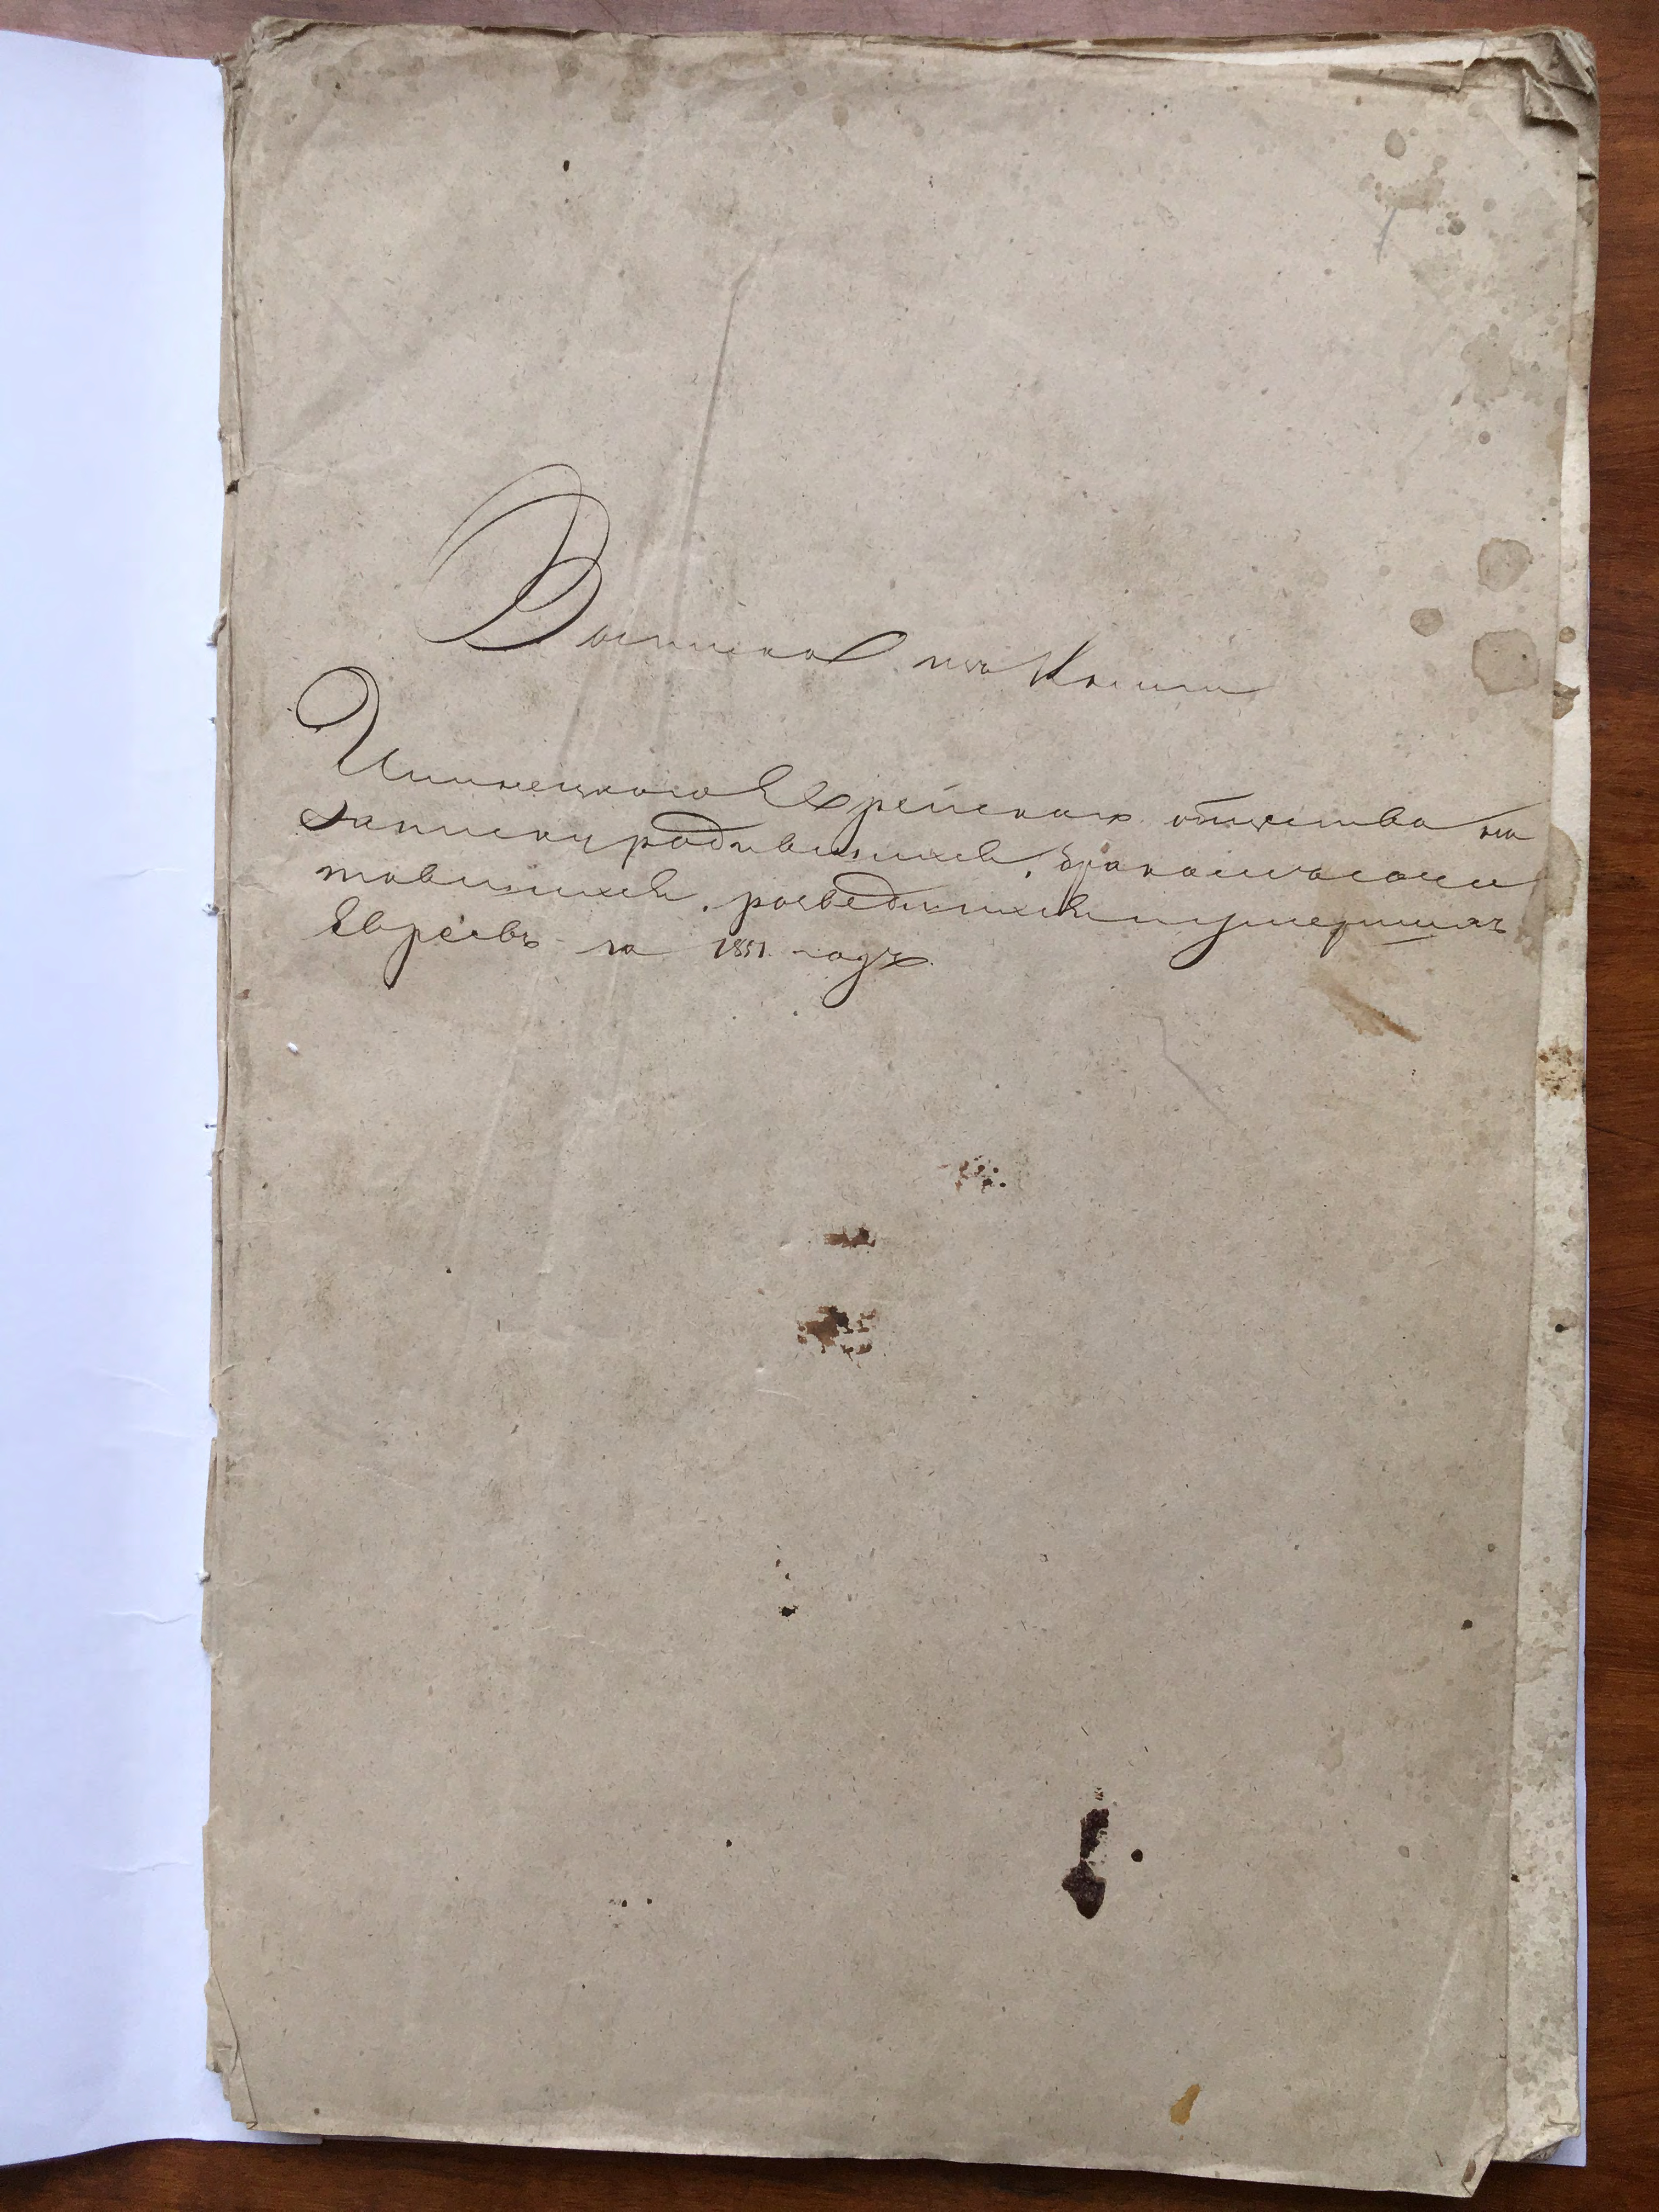 Выписка изъ Книги
Еврейскаго общества на
записку родившихся, бракосочас
тавшихся, розведшихся и умершихъ
Евреевъ за 1851 годъ.